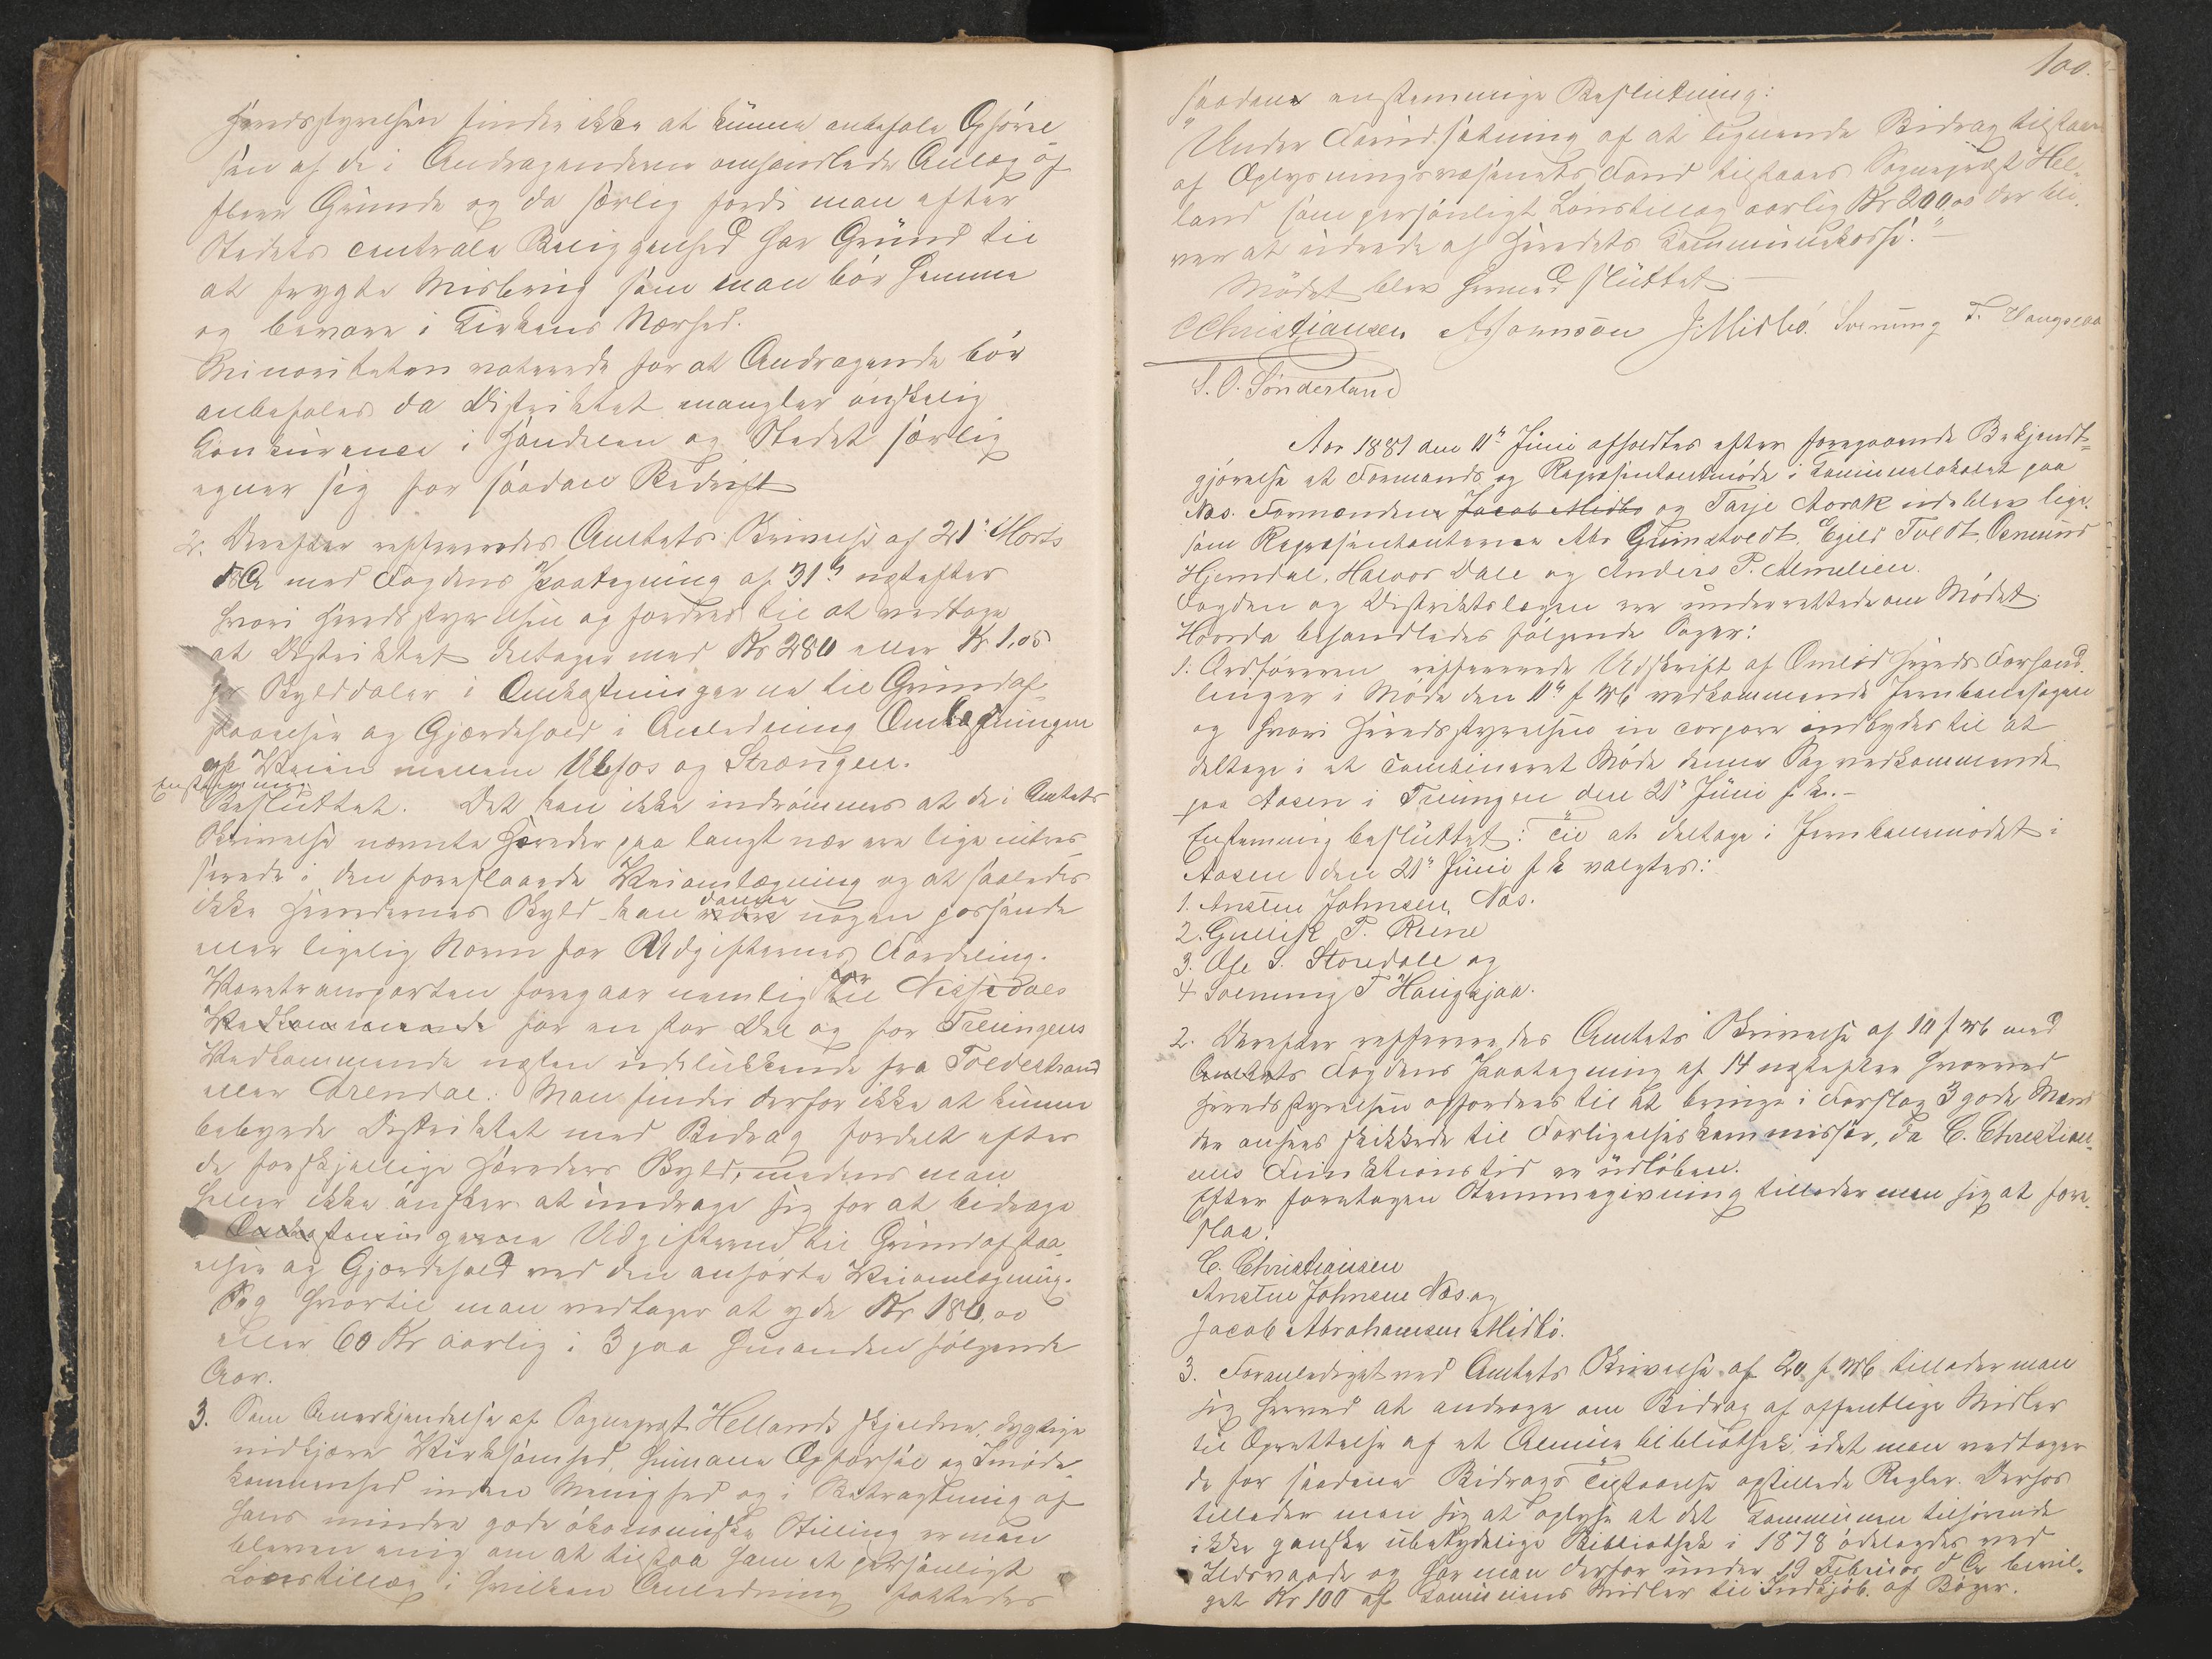 Heredsstyrelsen finder ikke at kunne anbefale Opførel-
sen af de i Andragenderne omhandlede Anlæg af
flere Grunde og da særlig fordi man efter
Stedets centrale Beliggenhed har Grund til
at frygte Misbrug som man bør hemme
og bevare i Kirkens Nærhed.
Minoriteten voterede for at Andragende bør
anbefales da Distriktet mangler ønskelig
Konkurance i Handelen og Stedet særlig
egner sig for saadan Bedrift
2. Derefter refereredes Amtets Skrivelse af 21' Marts
d.A. med Fogdens Paategning af 31te næstefter
hvori Heredsstyrelsen opfordres til at vedtage
at Distriktet deltager med Kr 280 eller Kr 1.05
pr Skylddaler i Omkostningerne til Grundaf-
staaelse og Gjærdehold i Anledning Omlægningen
af Veien mellem Ulefos og Strængen.
Enstemmig
Besluttet. Det kan ikke indrømmes at de i Amtets
Skrivelse nævnte Hereder paa langt nær ere lige interes-
serede i den foreslaaede Veiomlægning og at saaledes
danne
ikke Heredernes Skyld kan være nogen passende
eller ligelig Norm for Udgifternes Fordeling.
for
Varetransporten foregaar nemlig til Nissedals
Vedkommende for en stor Del og for Treungens
Vedkommende næsten udelukkende fra Tvedestrand
eller Arendal. Man finder derfor ikke at kunne
bebyrde Distriktet med Bidrag fordelt efter
de forskjellige Hereders Skyld, medens man
heller ikke ønsker at unddrage sig for at bidrage
Omkostningerne Udgifterne til Grundafstaa-
elser og Gjærdehold ved den anførte Veiomlægning.
Sag hvortil man vedtager at yde Kr 180,00
eller 60 Kr aarlig i 3 paa hinanden følgende
Aar.
3. Som Anerkjendelse af Sognepræst Hellands skjeldne, dygtige
nidkjære Virksomhed, humane Opførsel og Imøde-
kommenhed inden Menighed og i Betragtning af
hans mindre gode økonomiske Stilling er man
bleven enig om at tilstaa ham et personligt
Lønstillæg i hvilken Anledning fattedes
100.
saadan enstemmige Beslutning:
"Under Forudsætning af at lignende Bidrag tilstaaes
af Oplysningsvæsenets Fond tilstaaes Sognepræst Hel-
land som personligt Lønstillæg aarlig Kr 200,00 der bli-
ver at udrede af Heredets Kommunekasse."
Mødet blev hermed sluttet
C Christiansen A Johnsøn J. Midbø. Svenung T. Haugsjaa
S. O. Sønderland
Aar 1881 den 11te Juni afholdtes efter foregaaende Bekjendt-
gjørelse et Formands og Repræsentantmøde i Communelokalet paa
Næs. Formændene Jacob Midbo og Tarje Aarak udeblev lige-
som Repræsentanterne Abr Grimstvedt, Egild Tvedt, Osmund
Hjemdal, Halvor Dale og Anders P. Almelien.
Fogden og Distriktslægen ere underrettede om Mødet.
Hvorda behandledes følgende Sager:
1. Ordføreren refererede Udskrift af Omlid Hereds Forhand-
linger i Møde den 11te f Mb vedkommende Jernbanesagen
og hvori Heredsstyrelsen in corpore indbydes til at
deltage i et combineret Møde denne Sag vedkommende
paa Aasen i Treungen den 21' Juni f. k.-
Enstemmig besluttet: Til at deltage i Jernbanemødet i
Aasen den 21' Juni f k valgtes:
1. Ansten Johnsen, Næs.
2. Gunleik T. Rune
3. Ole S. Storedale og
4 Svenung T Haugsjaa.
2. Derefter refereredes Amtets Skrivelse af 10 f Mb med
Amtets Fogdens Paategning af 14 næstefter hvorved
Heredsstyrelsen opfordres til at bringe i Forslag 3 gode Mænd
der ansees skikkede til Forligelseskommissær, da C. Christian-
sens Funktionstid er udløben.
Efter foretagen Stemmegivning tillader man sig at fore-
slaa:
C. Christiansen
Ansten Johnsen Næs og
Jacob Abrahamsen Midbø.
3. Foranlediget ved Amtets Skrivelse af 20 f Mb tillader man
sig herved at andrage om Bidrag af offentlige Midler
til Oprettelse af et Almuebibliothek, idet man vedtager
de for saadanne Bidrags Tilstaaelse opstillede Regler. Derhos
tillader man sig at oplyse at det Kommunen tilhørende
ikke ganske ubetydelige Bibliothek i 1878 ødelagdes ved
Ildsvaade og har man derfor under 19 Februar d Ar bevil-
get Kr 100 af Kommunens Midler til Indkjøb af Bøger.